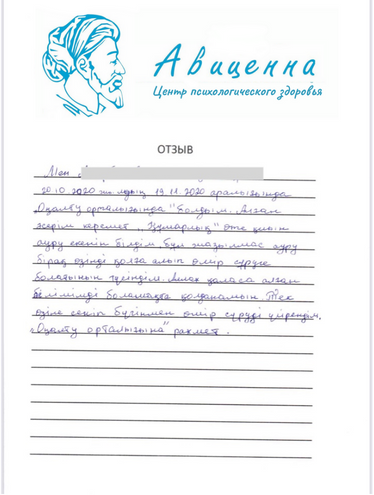 Авиценна
Центр психологического здоровья
ОТЗЫВ
Мен
20.10.2020 жылдың 19.11.2020 аралығында
„Оңалту орталығында" болдым. Алған
әсерім керемет. „Құмарлық" өте қиын
ауру екенін білдім, бұл жазылмас ауру
бірақ өзіңді қолға алып өмір сүруге
болатынын түсіндім. Алла қаласа алған
білімімді болашақта қолданамын Тек
өзіңе сеніп бүгінмен өмір сүруді үйрендім.
„Оңалту орталығына" рахмет.